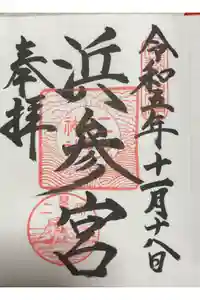 令和五年十一月十八日
浜参宮
奉拝